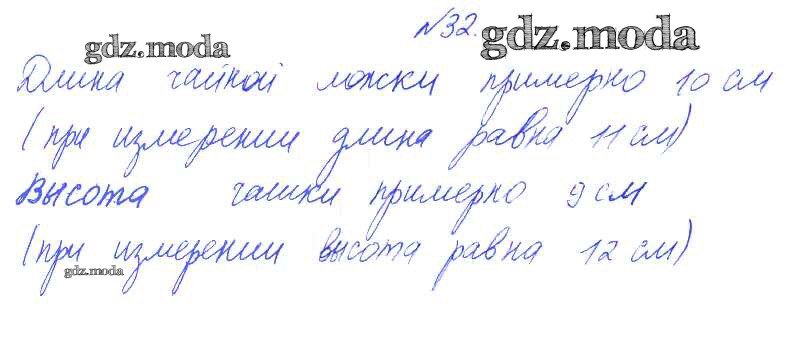 №32.
gdz.moda
gdz.moda
Длина чайной ложки примерно 10 см
(при измерении длина равна 11 см)
Высота чашки примерно 9 см
(при измерении высота равна 12 см)
gdz.moda